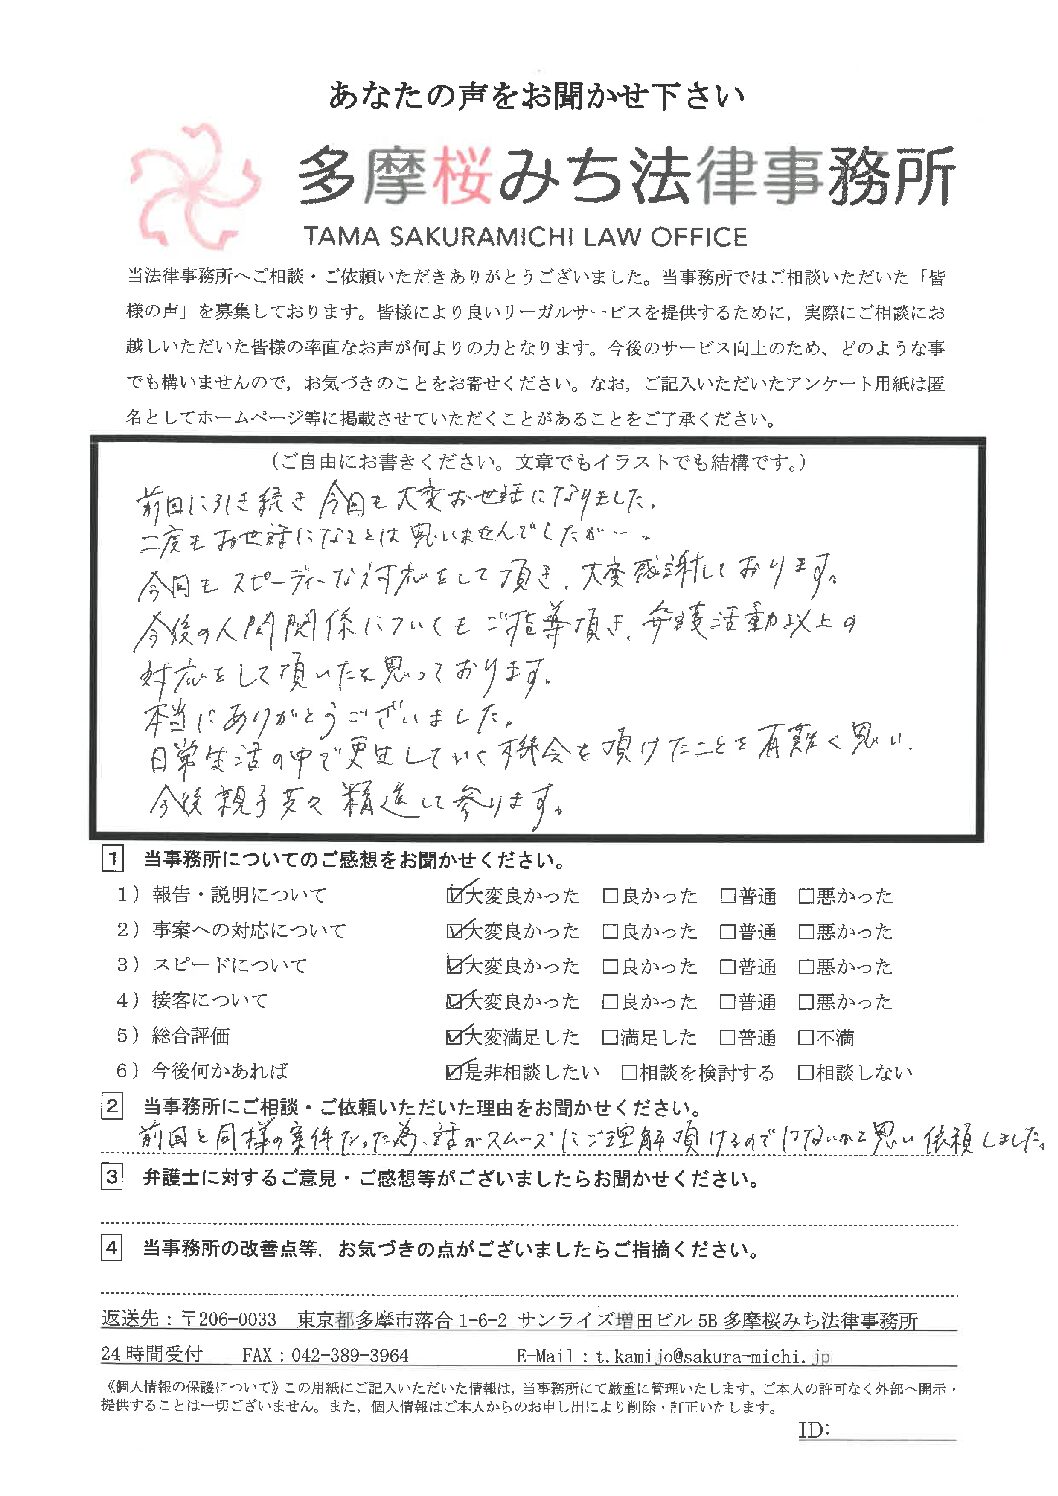 あなたの声をお聞かせ下さい
多摩桜みち法律事務所
TAMA SAKURAMICHI LAW OFFICE
当法律事務所へご相談・ご依頼いただきありがとうございました。当事務所ではご相談いただいた「皆
様の声」を募集しております。皆様により良いリーガルサービスを提供するために，実際にご相談にお
越しいただいた皆様の率直なお声が何よりの力となります。今後のサービス向上のため、どのような事
でも構いませんので，お気づきのことをお寄せください。なお，ご記入いただいたアンケート用紙は匿
名としてホームページ等に掲載させていただくことがあることをご了承ください。
（ご自由にお書きください。文章でもイラストでも結構です。）
前回に引き続き今回も大変お世話になりました。
二度もお世話になるとは思いませんでしたが…。
今回もスピーディーな対応をして頂き、大変感謝しております。
今後の人間関係についてもご指導頂き、弁護活動以上の
対応をして頂いたと思っております。
本当にありがとうございました。
日常生活の中で更生していく機会を頂けたことを有難く思い、
今後親子共々精進して参ります。
1 当事務所についてのご感想をお聞かせください。
1）報告・説明について ☑大変良かった □良かった □普通 □悪かった
2）事案への対応について ☑大変良かった □良かった □普通 □悪かった
3）スピードについて ☑大変良かった □良かった □普通 □悪かった
4）接客について ☑大変良かった □良かった □普通 □悪かった
5）総合評価 ☑大変満足した □満足した □普通 □不満
6）今後何かあれば ☑是非相談したい □相談を検討する □相談しない
2 当事務所にご相談・ご依頼いただいた理由をお聞かせください。
前回と同様の案件だった為、話がスムーズにご理解頂けるのではないかと思い依頼しました。
3 弁護士に対するご意見・ご感想等がございましたらお聞かせください。
4 当事務所の改善点等，お気づきの点がございましたらご指摘ください。
返送先：〒206-0033 東京都多摩市落合1-6-2 サンライズ増田ビル5B多摩桜みち法律事務所
24時間受付 FAX：042-389-3964 E-Mail：t.kamijo@sakura-michi.jp
《個人情報の保護について》この用紙にご記入いただいた情報は，当事務所にて厳重に管理いたします。ご本人の許可なく外部へ開示・
提供することは一切ございません。また，個人情報はご本人からのお申し出により削除・訂正いたします。
ID: